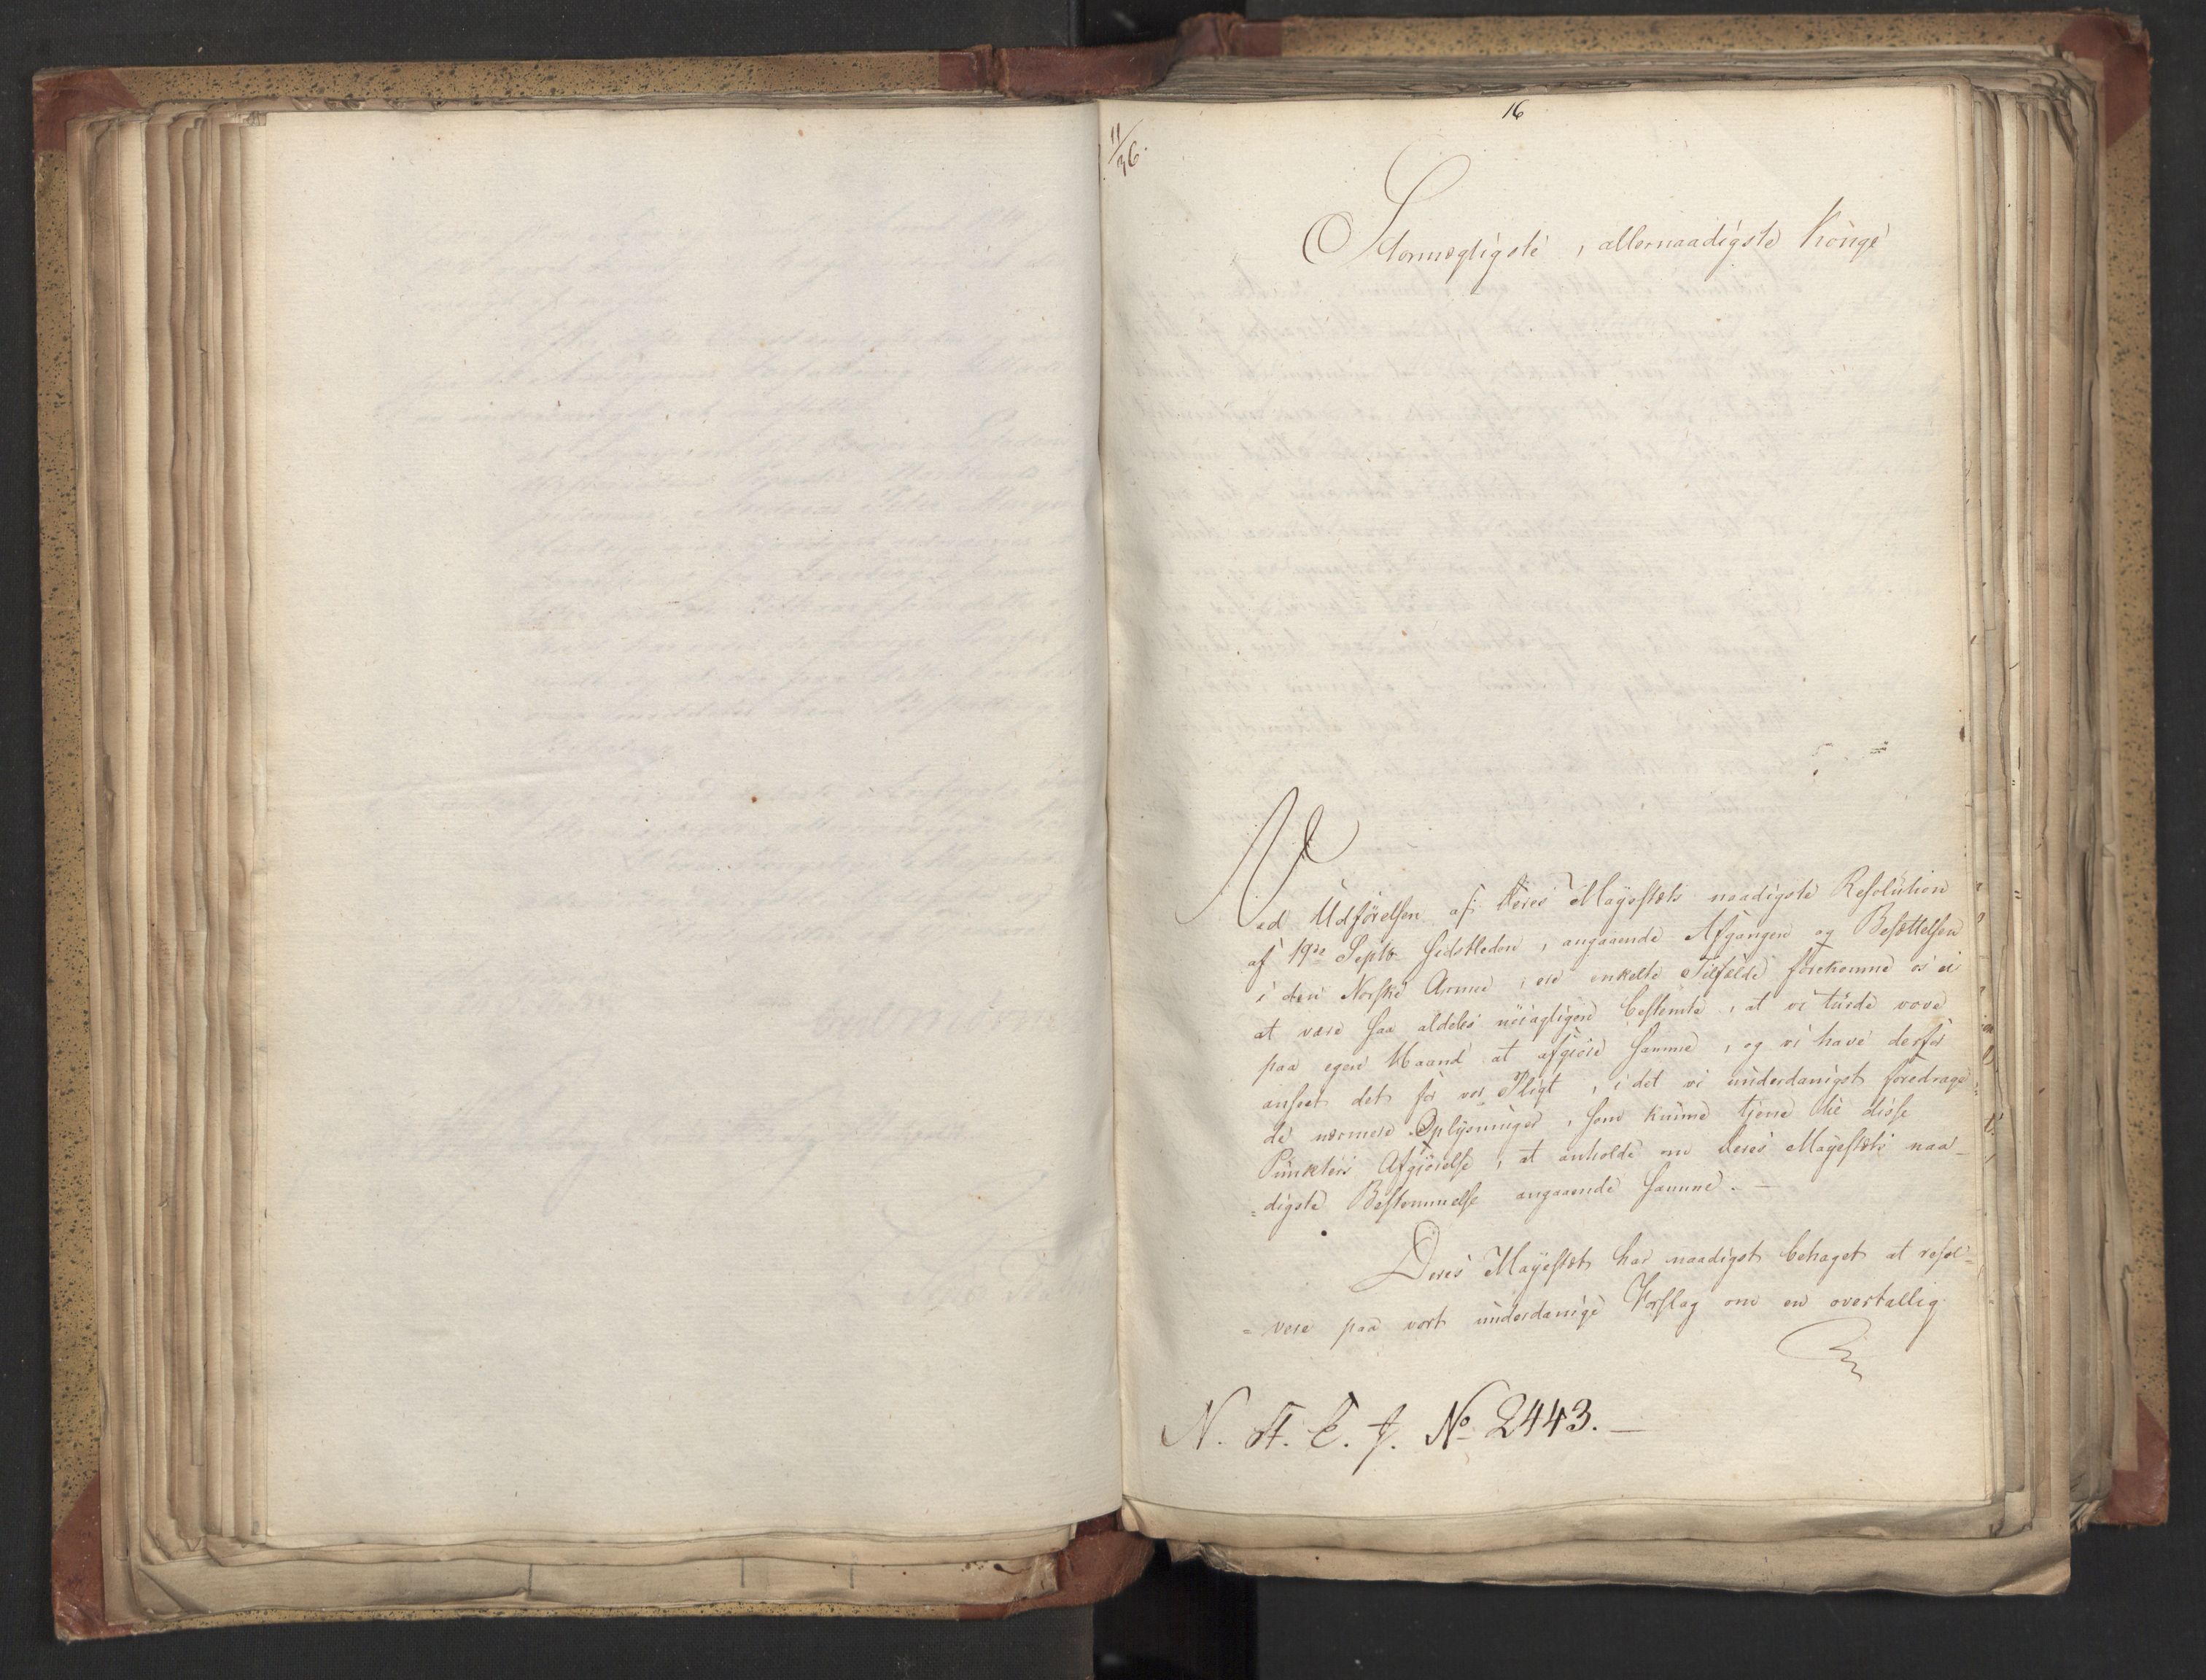 16
11/36.
Stormegtigste, allernaadigste Konge
Ved Udførelsen af Deres Mayestæts naadigste Resolution
af 19de Septb. sidstleden, angaaende Afgangen og Besættelsen
i den Norske Armee, ere enkelte Tilfælde forekomne os ei
at være saa aldeles nöiagtigen bestemte, at vi turde vove
paa egen Haand at afgiöre samme, og vi have derfor
anseet det for vor Pligt, i det vi underdanigst foredrage
de nærmere Oplysninger, som kunne tjene til disse
Punkters Afgiörelse, at anholde om Deres Mayestæts naa-
=digste Bestemmelse angaaende samme. —
Deres Mayestæt har naadigst behaget at resol=
=vere paa vort underdanige Forslag om en overtallig
N. St. E. J. No 2443. —